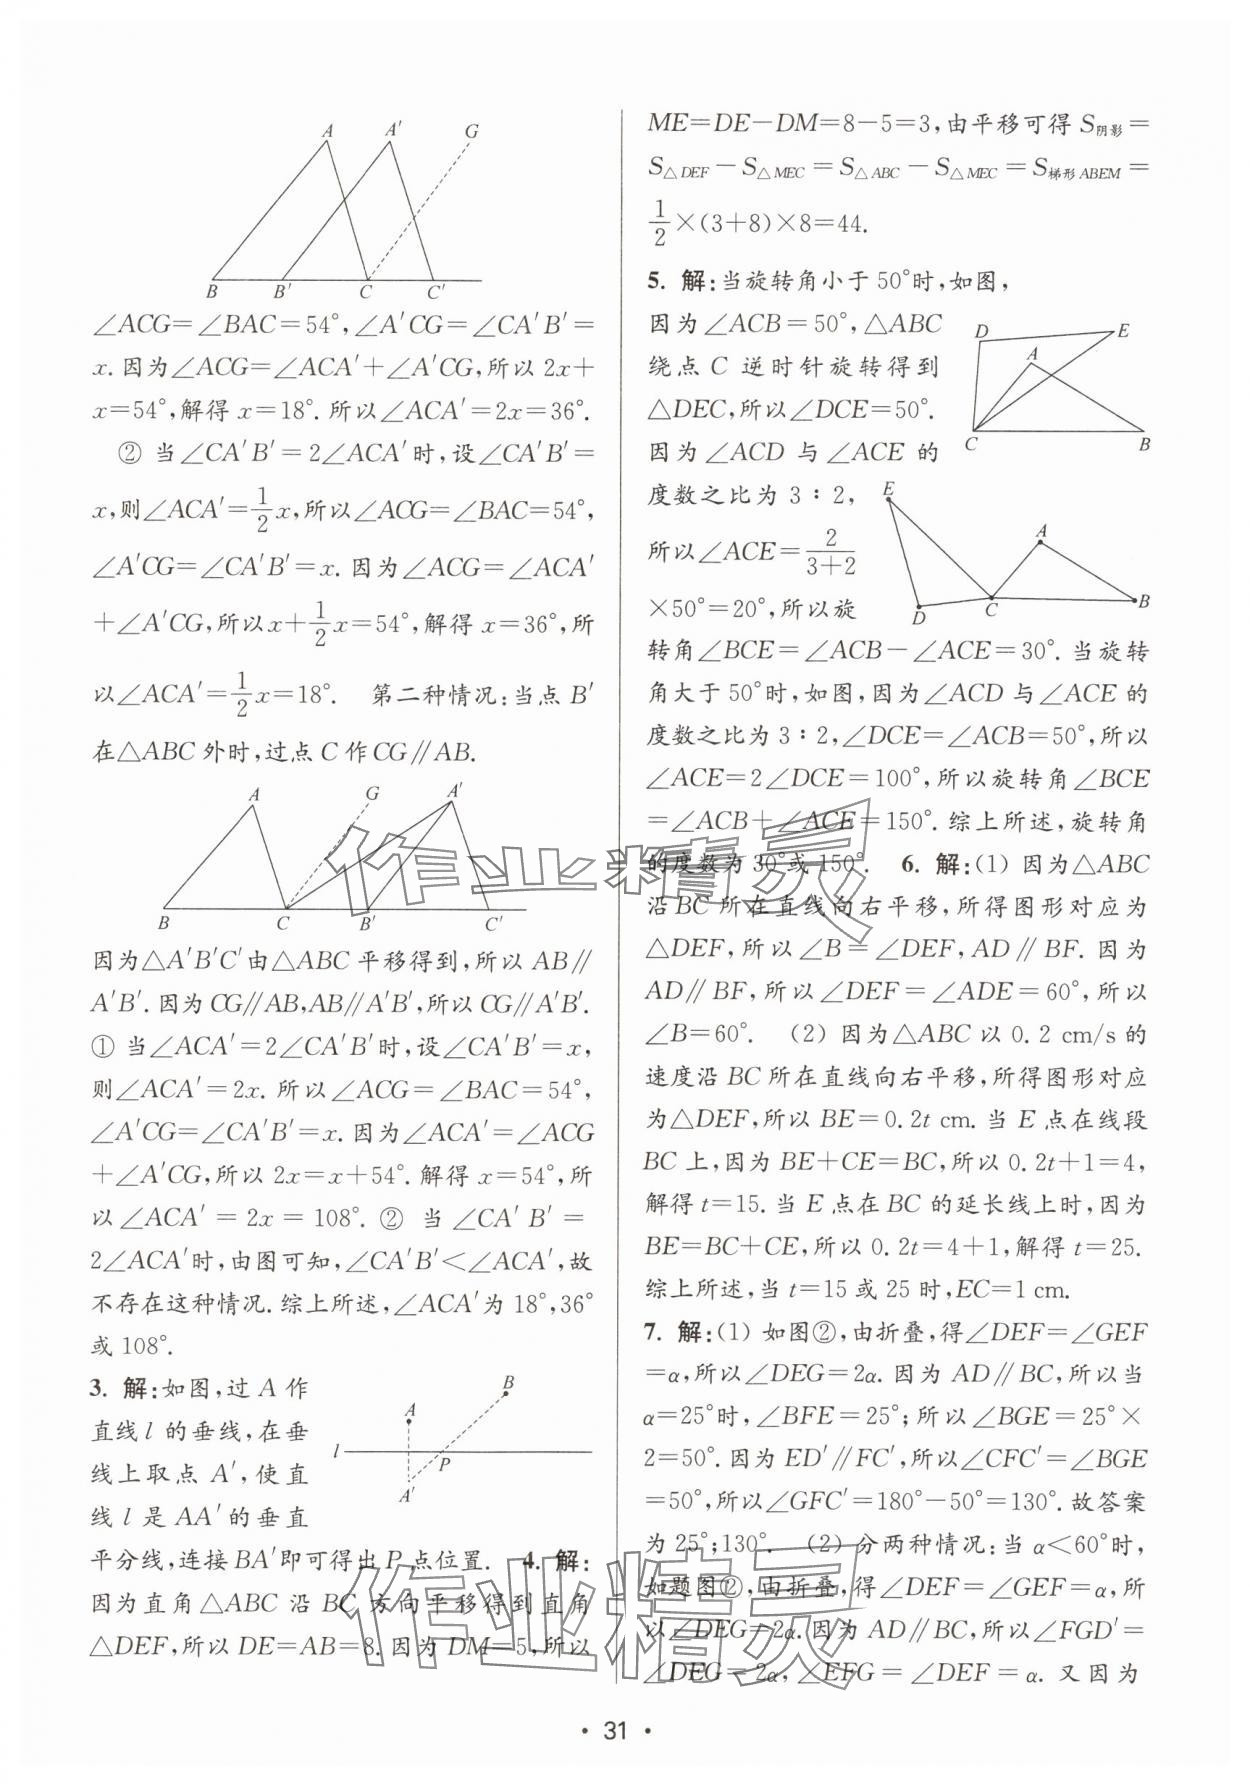 A A′ G
B B′ C C′
∠ACG=∠BAC=54°,∠A′CG=∠CA′B′=
x.因为∠ACG=∠ACA′+∠A′CG,所以 2x+
x=54°,解得 x=18°.所以∠ACA′=2x=36°.
② 当∠CA′B′=2∠ACA′时,设∠CA′B′=
x,则∠ACA′=1/2x,所以∠ACG=∠BAC=54°,
∠A′CG=∠CA′B′=x.因为∠ACG=∠ACA′
+∠A′CG,所以x+1/2x=54°,解得 x=36°,所
以∠ACA′=1/2x=18°. 第二种情况:当点 B′
在△ABC 外时,过点 C 作 CG∥AB.
A G A′
B C B′ C′
因为△A′B′C′由△ABC 平移得到,所以 AB∥
A′B′.因为 CG∥AB,AB∥A′B′,所以 CG∥A′B′.
① 当∠ACA′=2∠CA′B′时,设∠CA′B′=x,
则∠ACA′=2x.所以∠ACG=∠BAC=54°,
∠A′CG=∠CA′B′=x.因为∠ACA′=∠ACG
+∠A′CG,所以 2x=x+54°.解得 x=54°,所
以∠ACA′=2x=108°.② 当∠CA′B′=
2∠ACA′时,由图可知,∠CA′B′<∠ACA′,故
不存在这种情况.综上所述,∠ACA′为 18°,36°
或 108°.
3. 解:如图,过 A 作
直线 l 的垂线,在垂
线上取点 A′,使直
线 l 是 AA′的垂直
B
A
l P
A′
平分线,连接 BA′即可得出 P 点位置. 4. 解:
因为直角△ABC 沿 BC 方向平移得到直角
△DEF,所以 DE=AB=8.因为 DM=5,所以
ME=DE-DM=8-5=3,由平移可得 S阴影=
S△DEF-S△MEC=S△ABC-S△MEC=S梯形ABEM=
1/2×(3+8)×8=44.
5. 解:当旋转角小于 50°时,如图,
因为∠ACB=50°,△ABC
绕点 C 逆时针旋转得到
△DEC,所以∠DCE=50°.
因为∠ACD 与∠ACE 的
度数之比为 3∶2,
所以∠ACE=2/(3+2)
×50°=20°,所以旋
D E
A
C B
E
A
D C B
转角∠BCE=∠ACB-∠ACE=30°.当旋转
角大于 50°时,如图,因为∠ACD 与∠ACE 的
度数之比为 3∶2,∠DCE=∠ACB=50°,所以
∠ACE=2∠DCE=100°,所以旋转角∠BCE
=∠ACB+∠ACE=150°.综上所述,旋转角
的度数为 30°或 150°. 6. 解:(1) 因为△ABC
沿 BC 所在直线向右平移,所得图形对应为
△DEF,所以∠B=∠DEF,AD∥BF.因为
AD∥BF,所以∠DEF=∠ADE=60°,所以
∠B=60°. (2) 因为△ABC 以 0.2 cm/s 的
速度沿 BC 所在直线向右平移,所得图形对应
为△DEF,所以 BE=0.2t cm.当 E 点在线段
BC 上,因为 BE+CE=BC,所以 0.2t+1=4,
解得 t=15.当 E 点在 BC 的延长线上时,因为
BE=BC+CE,所以 0.2t=4+1,解得 t=25.
综上所述,当 t=15 或 25 时,EC=1 cm.
7. 解:(1) 如图②,由折叠,得∠DEF=∠GEF
=α,所以∠DEG=2α.因为 AD∥BC,所以当
α=25°时,∠BFE=25°;所以∠BGE=25°×
2=50°.因为 ED′∥FC′,所以∠CFC′=∠BGE
=50°,所以∠GFC′=180°-50°=130°.故答案
为 25°;130°. (2) 分两种情况:当 α<60°时,
如题图②,由折叠,得∠DEF=∠GEF=α,所
以∠DEG=2α.因为 AD∥BC,所以∠FGD′=
∠DEG=2α,∠EFG=∠DEF=α.又因为
作业精灵
作业精灵
• 31 •